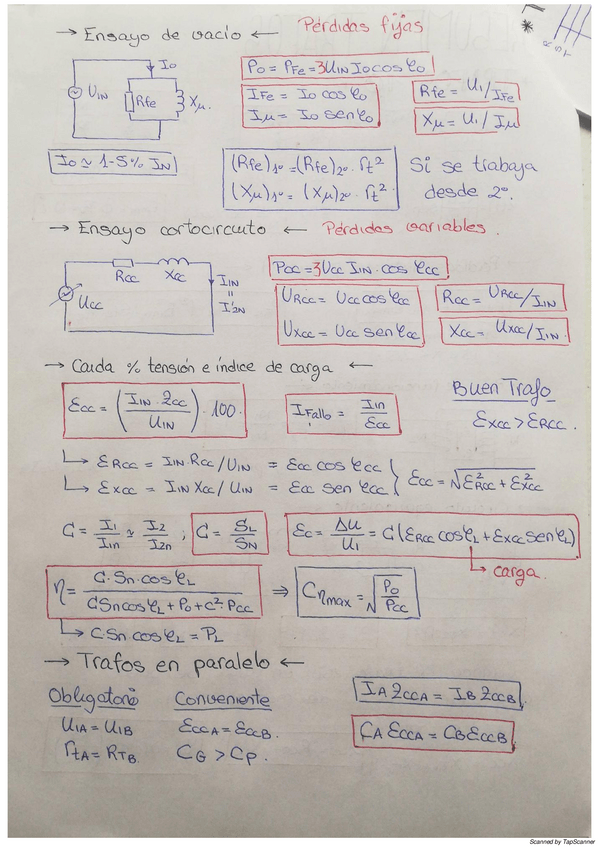 → Ensayo de vacío ← Pérdidas fijas
R S T
*
I0
UIN
Rfe
Xμ
P0 = PFe = 3UIN I0 cos φ0
IFe = I0 cos φ0
Iμ = I0 sen φ0
Rfe = U1/IFe
Xμ = U1/Iμ
I0 ≃ 1-5% IN
(Rfe)1º = (Rfe)2º · rt²
(Xμ)1º = (Xμ)2º · rt²
Si se trabaja
desde 2º.
→ Ensayo cortocircuito ← Pérdidas variables.
Rcc
Xcc
Ucc
I1N
=
I'2N
Pcc = 3Ucc I1N · cos φcc
URcc = Ucc cos φcc
UXcc = Ucc sen φcc
Rcc = URcc/I1N
Xcc = UXcc/I1N
→ Caída % tensión e índice de carga ←
εcc = (I1N · Zcc / U1N) · 100
IFallo = I1n / εcc
Buen Trafo
εXcc > εRcc.
↳ εRcc = I1N · Rcc / U1N = εcc cos φcc
↳ εXcc = I1N Xcc / U1N = εcc sen φcc } εcc = √(ε²Rcc + ε²Xcc)
C = I1/I1n ≃ I2/I2n ; C = SL/SN
εc = ΔU/U1 = C(εRcc cos φL + εXcc sen φL)
↳ carga.
η = C·Sn·cos φL / (C Sn cos φL + P0 + C²·Pcc) ⇒ Cηmax = √(P0/Pcc)
↳ C·Sn cos φL = PL
→ Trafos en paralelo ←
Obligatorio Conveniente
U1A = U1B εccA = εccB.
rtA = RTB. CG > CP.
IA ZccA = IB ZccB
CA εccA = CB εccB
Scanned by TapScanner